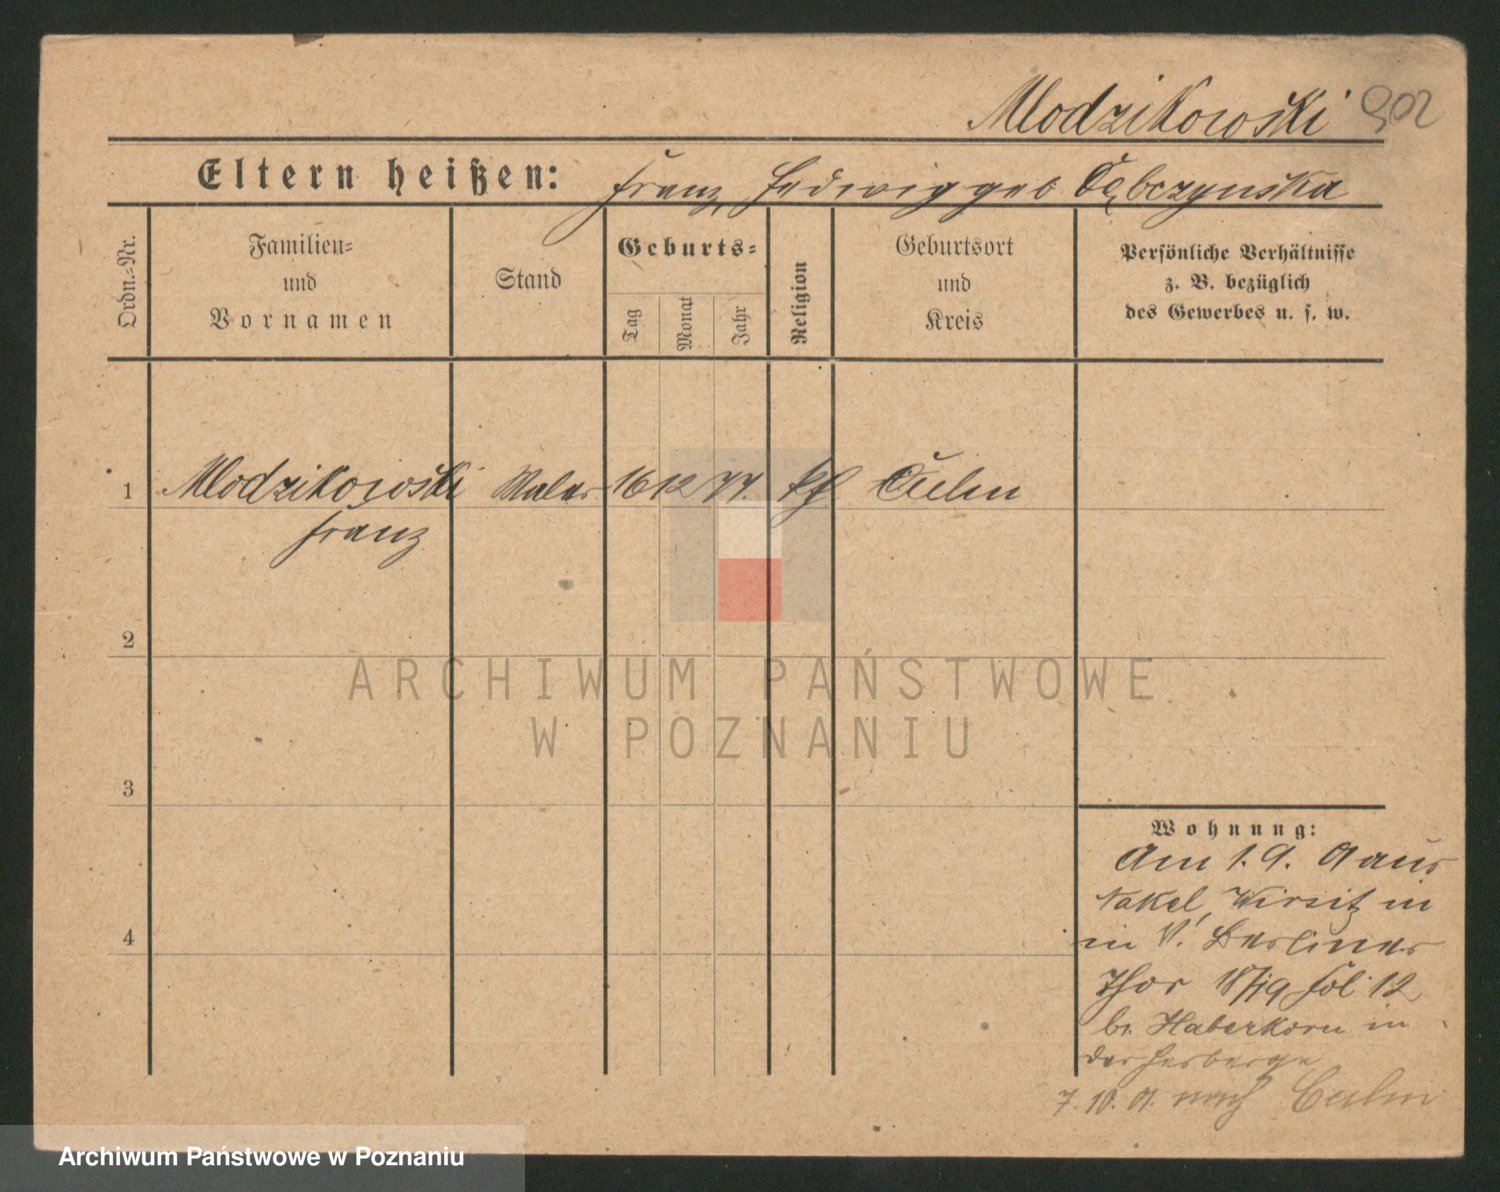 Mlodzikowski 902
Eltern heißen: Franz, Hedwig geb
Ordn.-Nr.
Familien-
und
Vornamen
Stand
Geburts-
Tag
Monat
Jahr
Religion
Geburtsort
und
Kreis
Persönliche Verhältnisse
z. B. bezüglich
des Gewerbes u. s. w.
1 Mlodzikowski Maler 16 12 77. kth Culm
Franz
2
3
4
Wohnung:
Am 1. 9. 01 aus
Nakel, Wirsitz in
in V. Berliner
Thor 18/19 Fol 12
br. Haberkorn in
der Herberge
7. 10. 01. nach Culm
ARCHIWUM PAŃSTWOWE
W POZNANIU
Archiwum Państwowe w Poznaniu